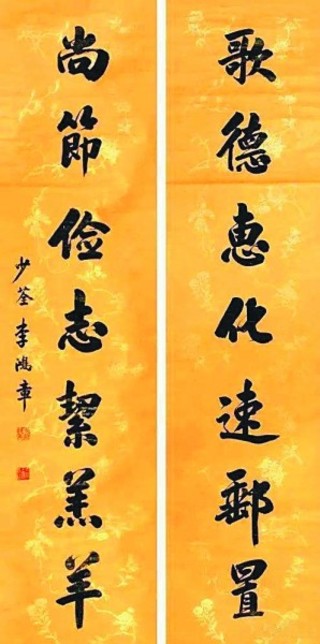 歌德惠化速郵置
尚節俭志絜羔羊
少荃李鴻章